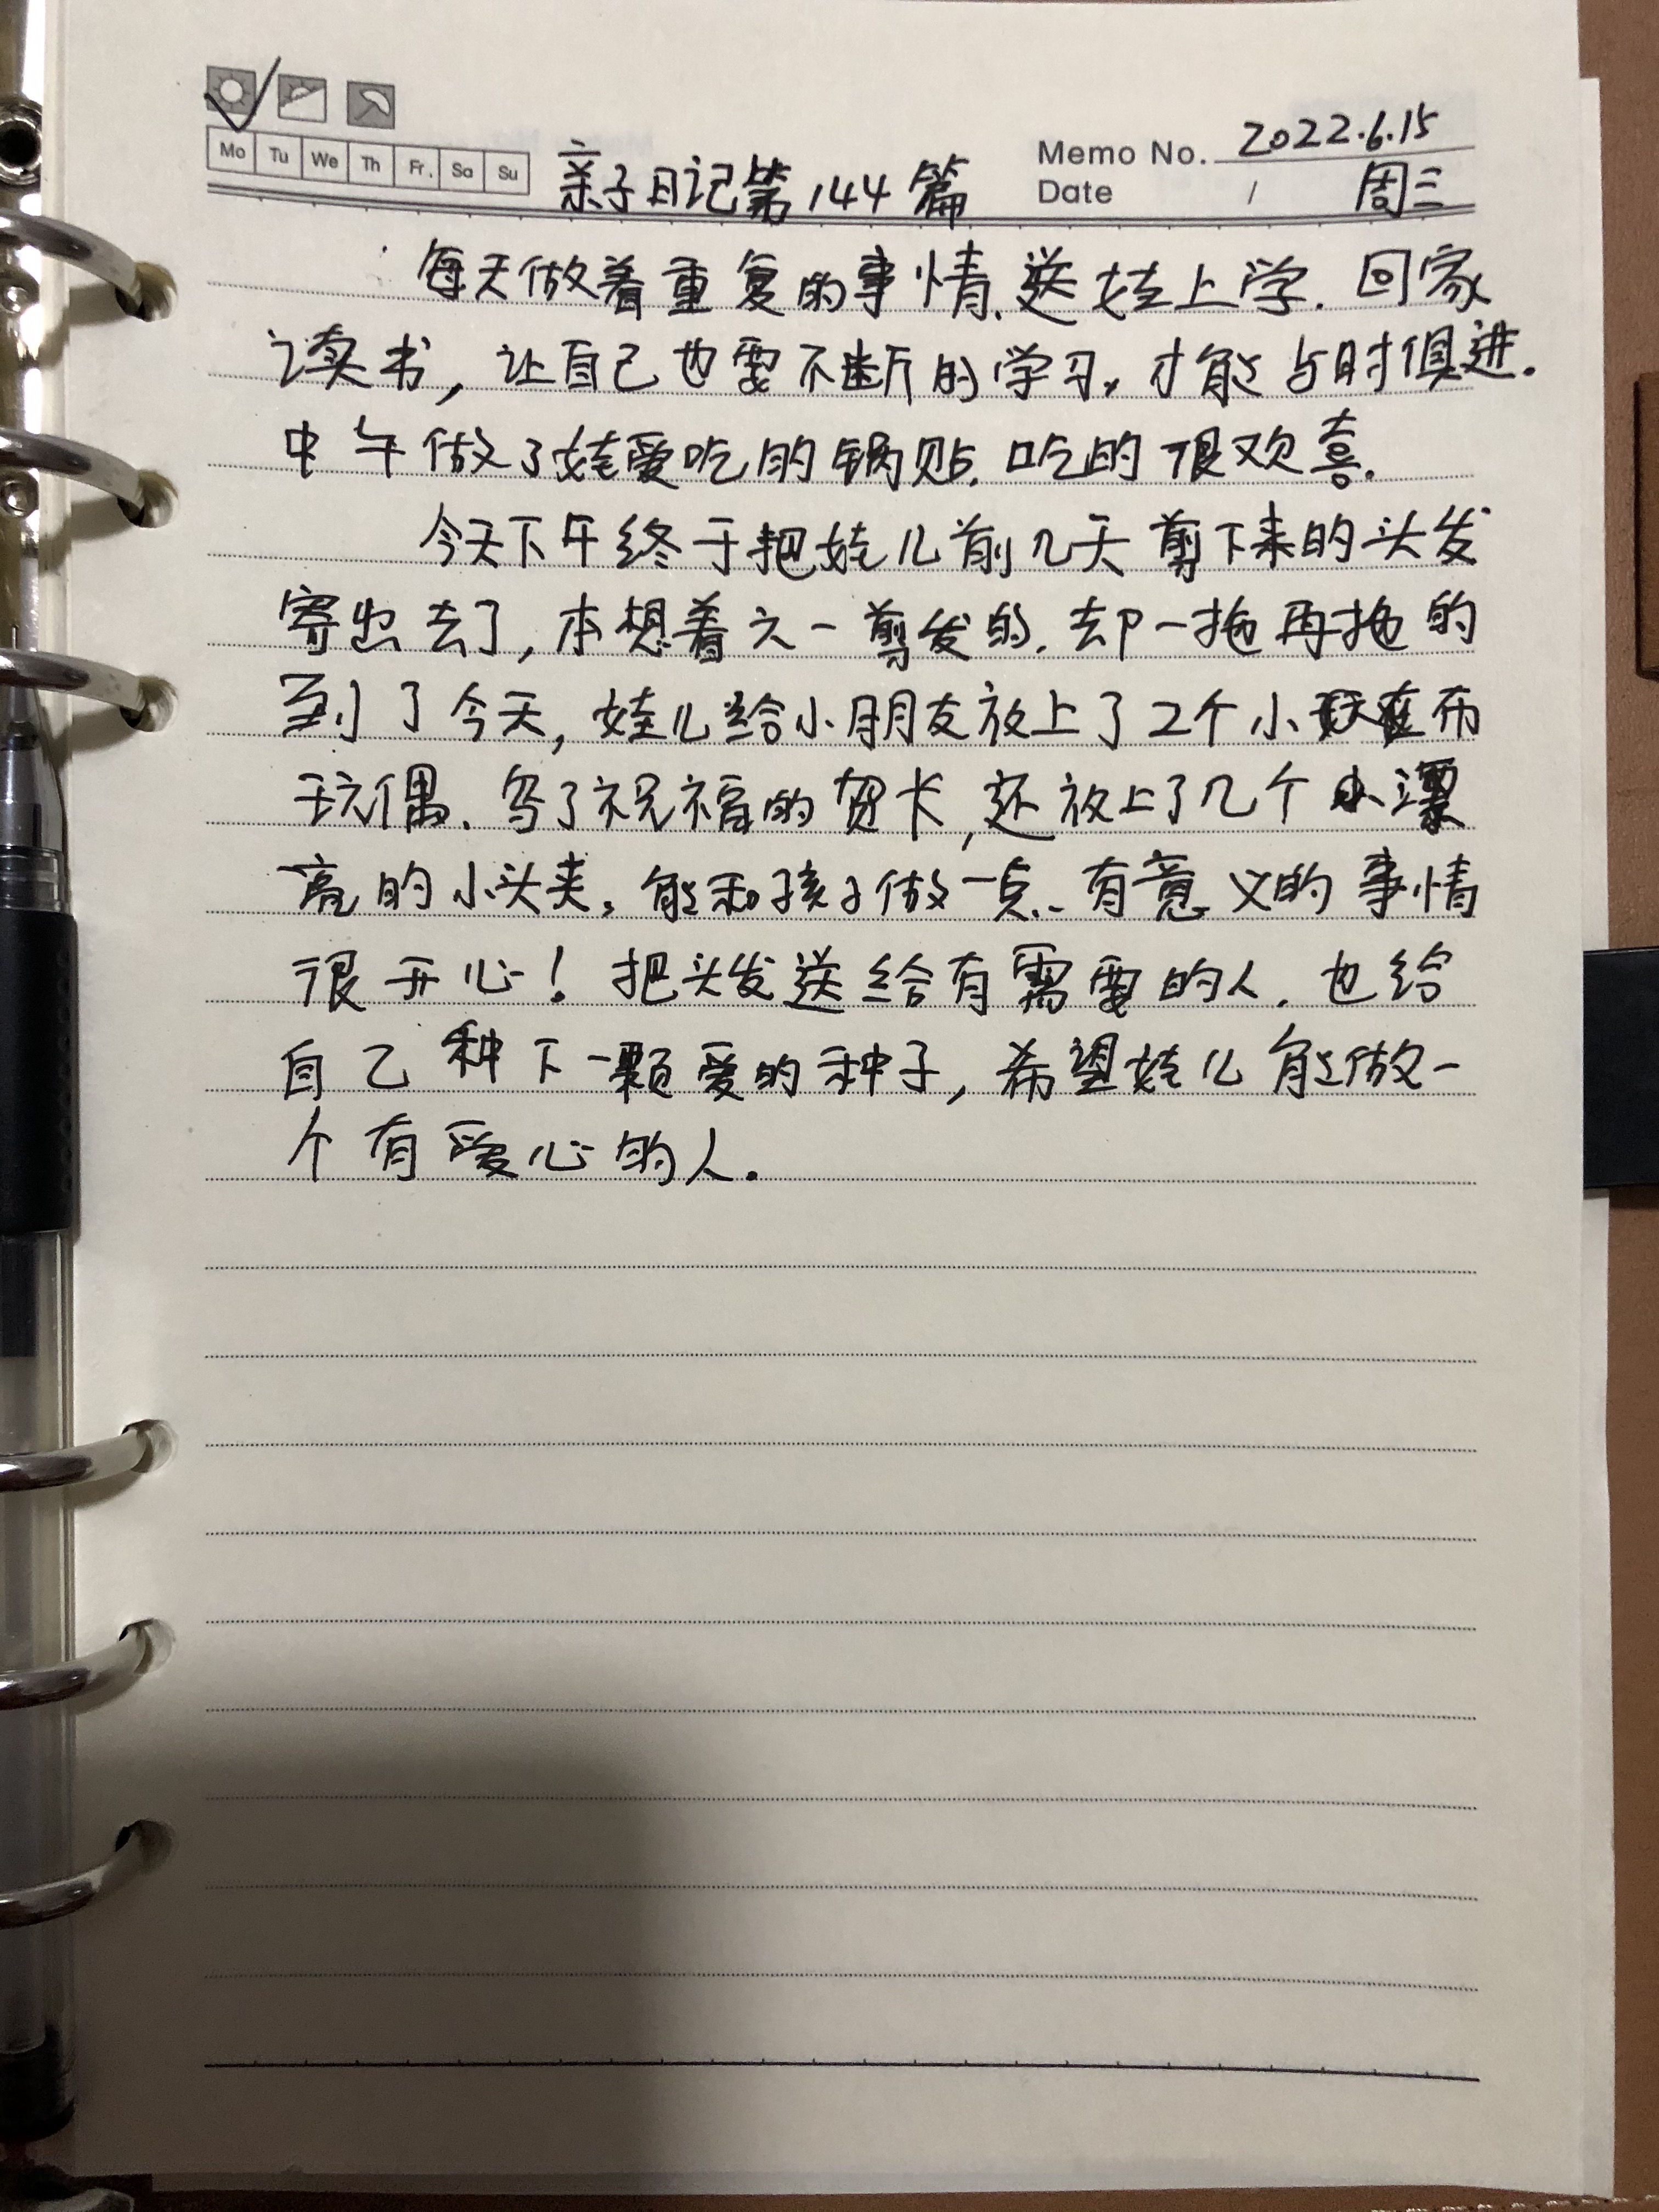 Mo Tu We Th Fr. Sa Su
亲子日记第144篇
Memo No. 2022.6.15
Date / 周三
每天做着重复的事情.送娃上学.回家
读书,让自己也要不断的学习,才能与时俱进.
中午做了娃爱吃的锅贴.吃的很欢喜.
今天下午终于把娃儿前几天剪下来的头发
寄出去了,本想着六一剪发的.却一拖再拖的
到了今天,娃儿给小朋友放上了2个小布
玩偶.写了祝福的贺卡,还放上了几个小漂
亮的小头夹.能和孩子做一点.有意义的事情
很开心!把头发送给有需要的人.也给
自己种下一颗爱的种子,希望娃儿能做一
个有爱心的人.